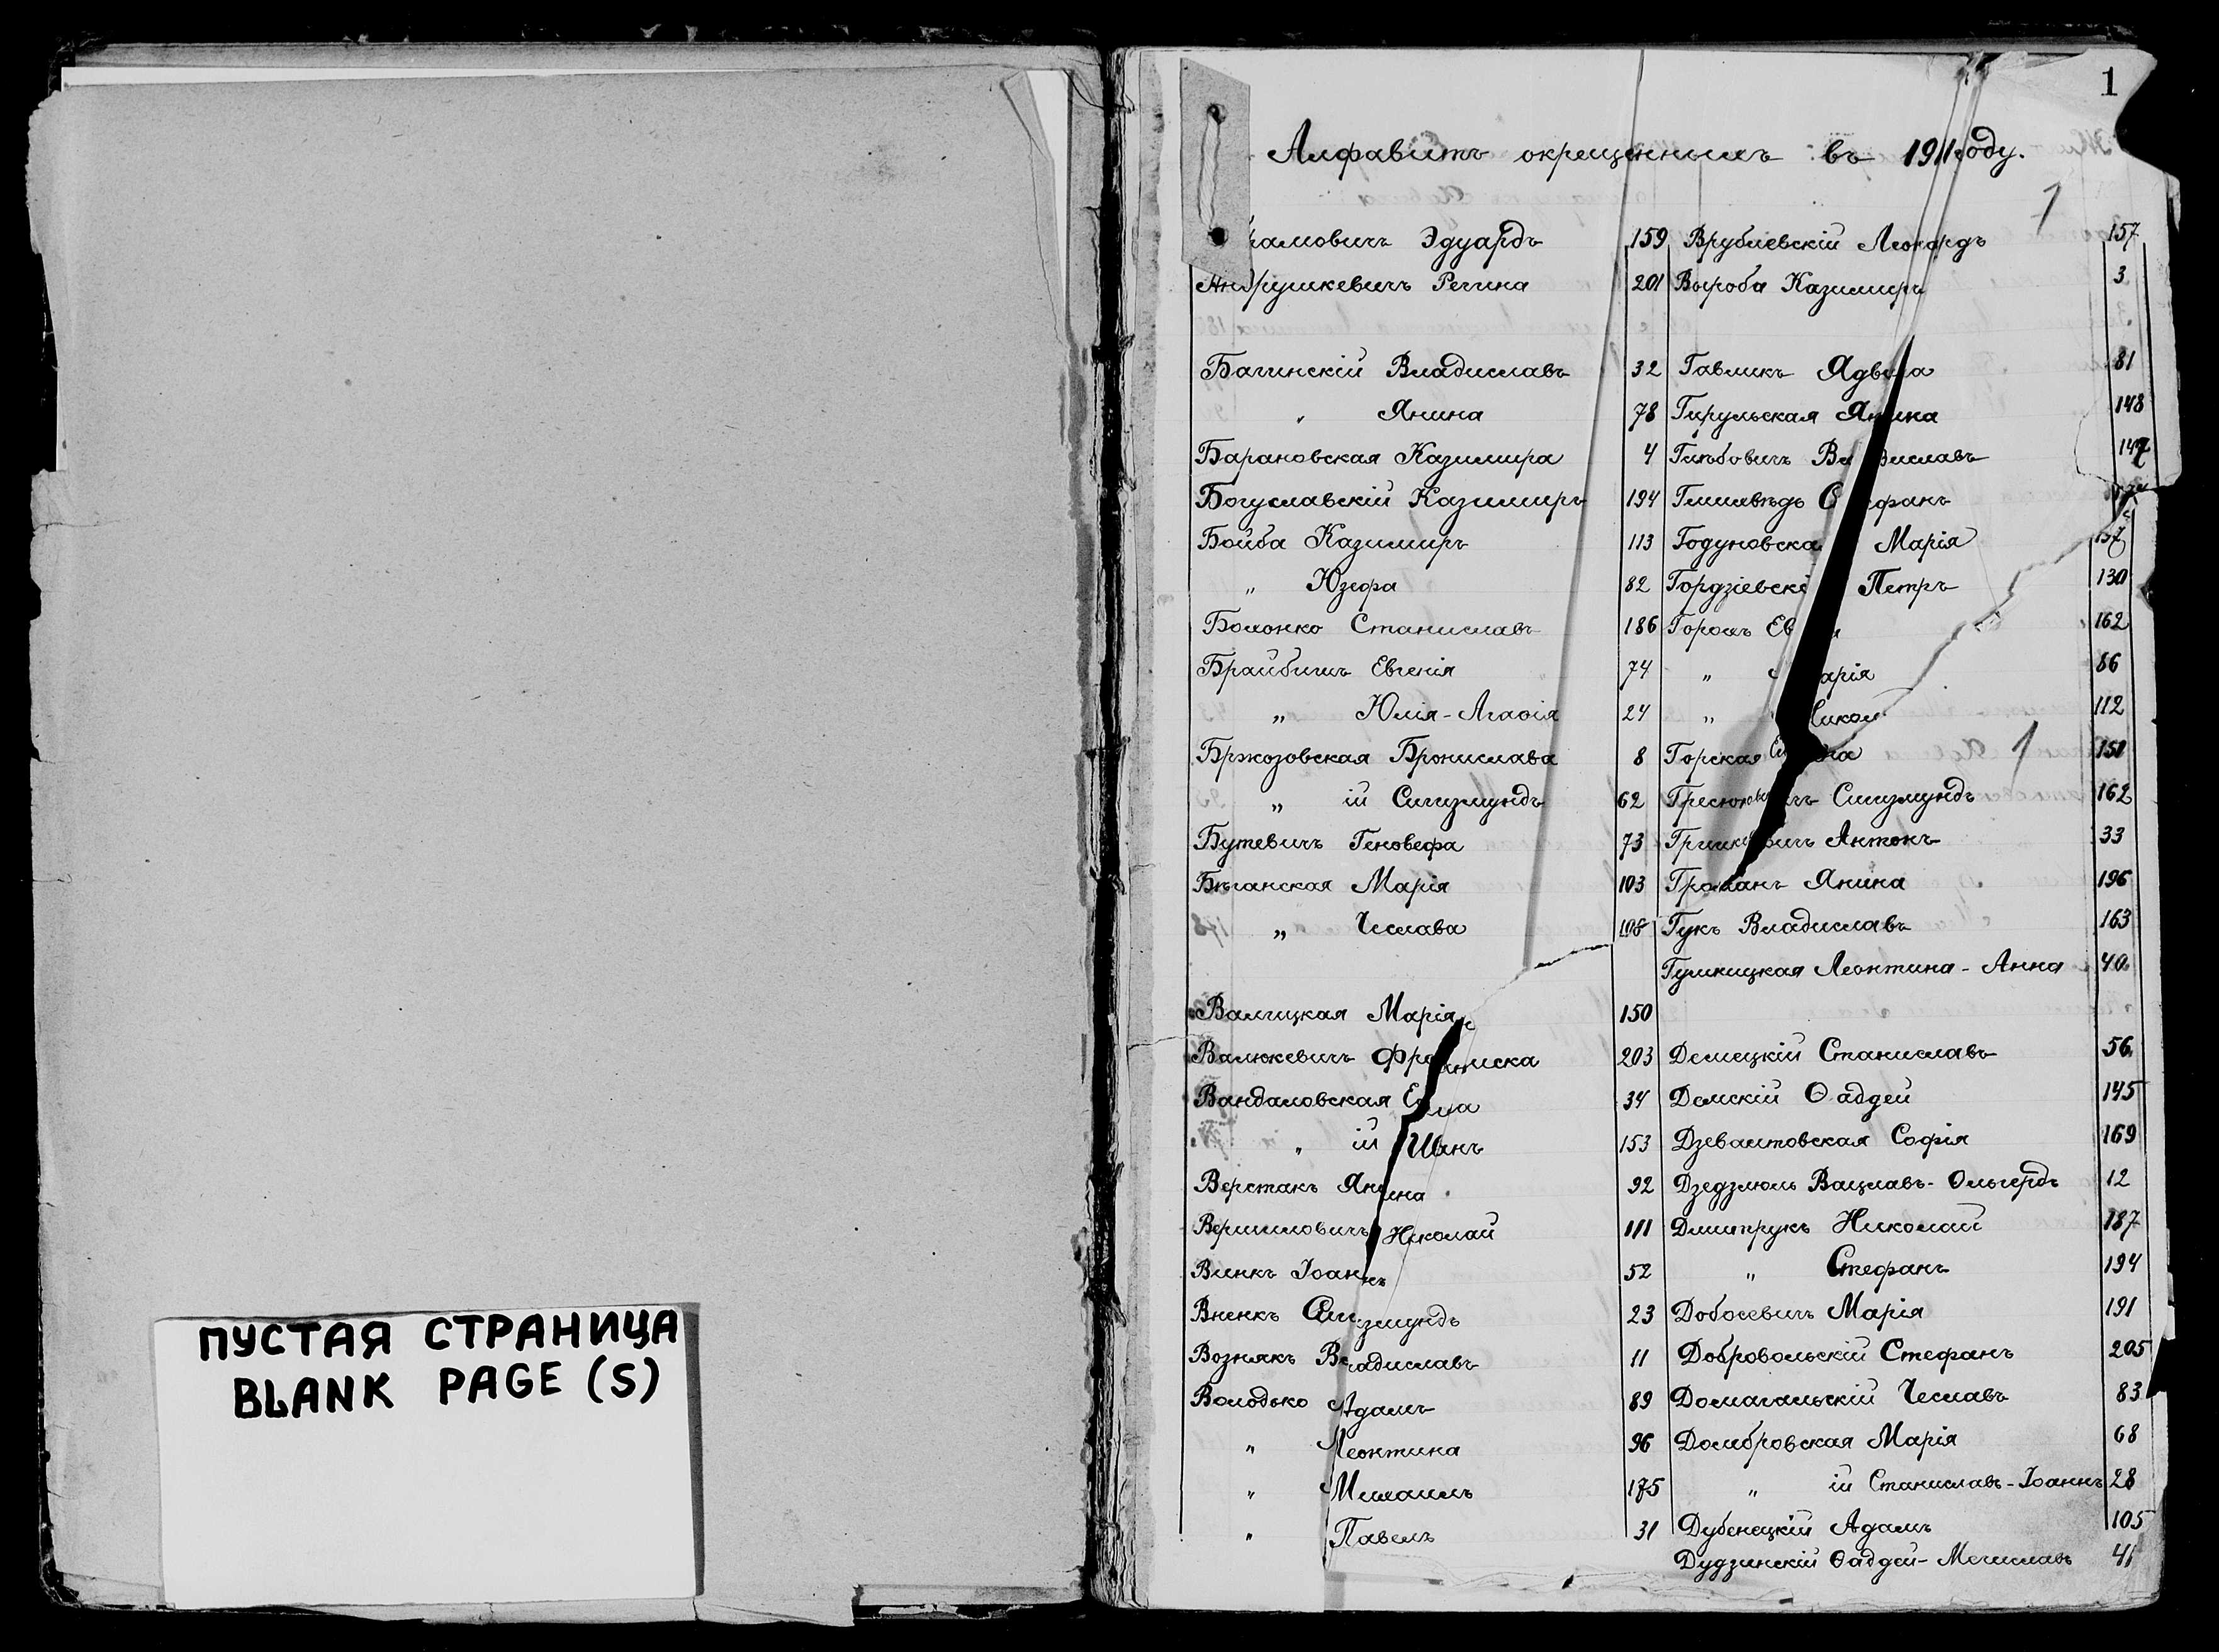 ПУСТАЯ СТРАНИЦА
BLANK PAGE (S)
1
Алфавитъ окрещеннымъ въ 1911 году.
1
рамовичъ Эдуардъ 159
Андрушкевичъ Регина 201
Багинскій Владиславъ 32
" Янина 78
Барановская Казимира 4
Богуславскій Казимиръ 194
Бойба Казимиръ 113
" Юзефа 82
Болонко Станиславъ 186
Брайбишъ Евгенія 74
" Юлія-Агаѳія 24
Бржозовская Бронислава 8
" ій Сигизмундъ 62
Бутевичъ Геновефа 73
Бѣганская Марія 103
" Чеслава 108
Валицкая Марія 150
Валюкевичъ Франциска 203
Вандаловская Елена 34
" ій Иванъ 153
Верстакъ Янина 92
Вершиловичъ Николай 111
Винкъ Іоаннъ 52
Вненкъ Сигизмундъ 23
Вознякъ Владиславъ 11
Володько Адамъ 89
" Леонтина 96
" Михаилъ 175
" Павелъ 31
Врублевскій Леонардъ 157
Выроба Казимиръ 3
Гавликъ Ядвига 81
Гирульская Янина 148
Глѣбовичъ Владиславъ
Стефанъ
Годуновская Марія 137
Гордзіевскі Петръ 130
Горохъ Ев 162
" Марія 86
" Никол 112
Горская 151
1
Гресюкевичъ Сигизмундъ 162
Гришкевичъ Антонъ 33
Громанъ Янина 196
Гукъ Владиславъ 163
Гушницкая Леонтина-Анна 40
Демецкій Станиславъ 56
Демскій Ѳаддей 145
Дзевалтовская Софія 169
Дзедзюль Вацлавъ-Ольгердъ 12
Дмитрукъ Николай 187
" Стефанъ 194
Добосевичъ Марія 191
Добровольскій Стефанъ 205
Домагальскій Чеславъ 83
Домбровская Марія 68
" ій Станиславъ-Іоаннъ 28
Дубенецкій Адамъ 105
Дудзинскій Ѳаддей-Мечиславъ 41